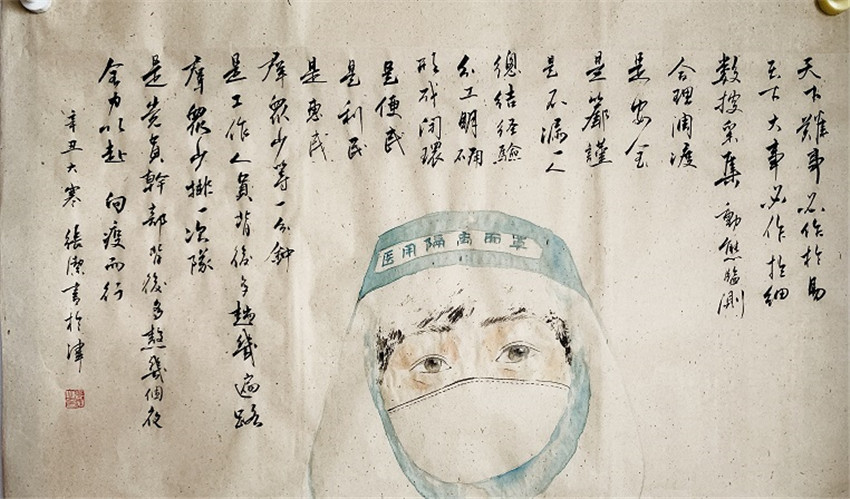 天下難事必作於易
天下大事必作於細
數據采集 動態監測
合理調度
是安全
是嚴謹
是不漏一人
總結經驗
分工明确
形成闭環
是便民
是利民
是惠民
群眾少等一分鈡
是工作人員背後多趟幾遍路
群眾少排一次隊
是党員幹部背後多熬幾個夜
全力以赴 向疫而行
辛丑大寒 張潔書於津
医用隔离面罩